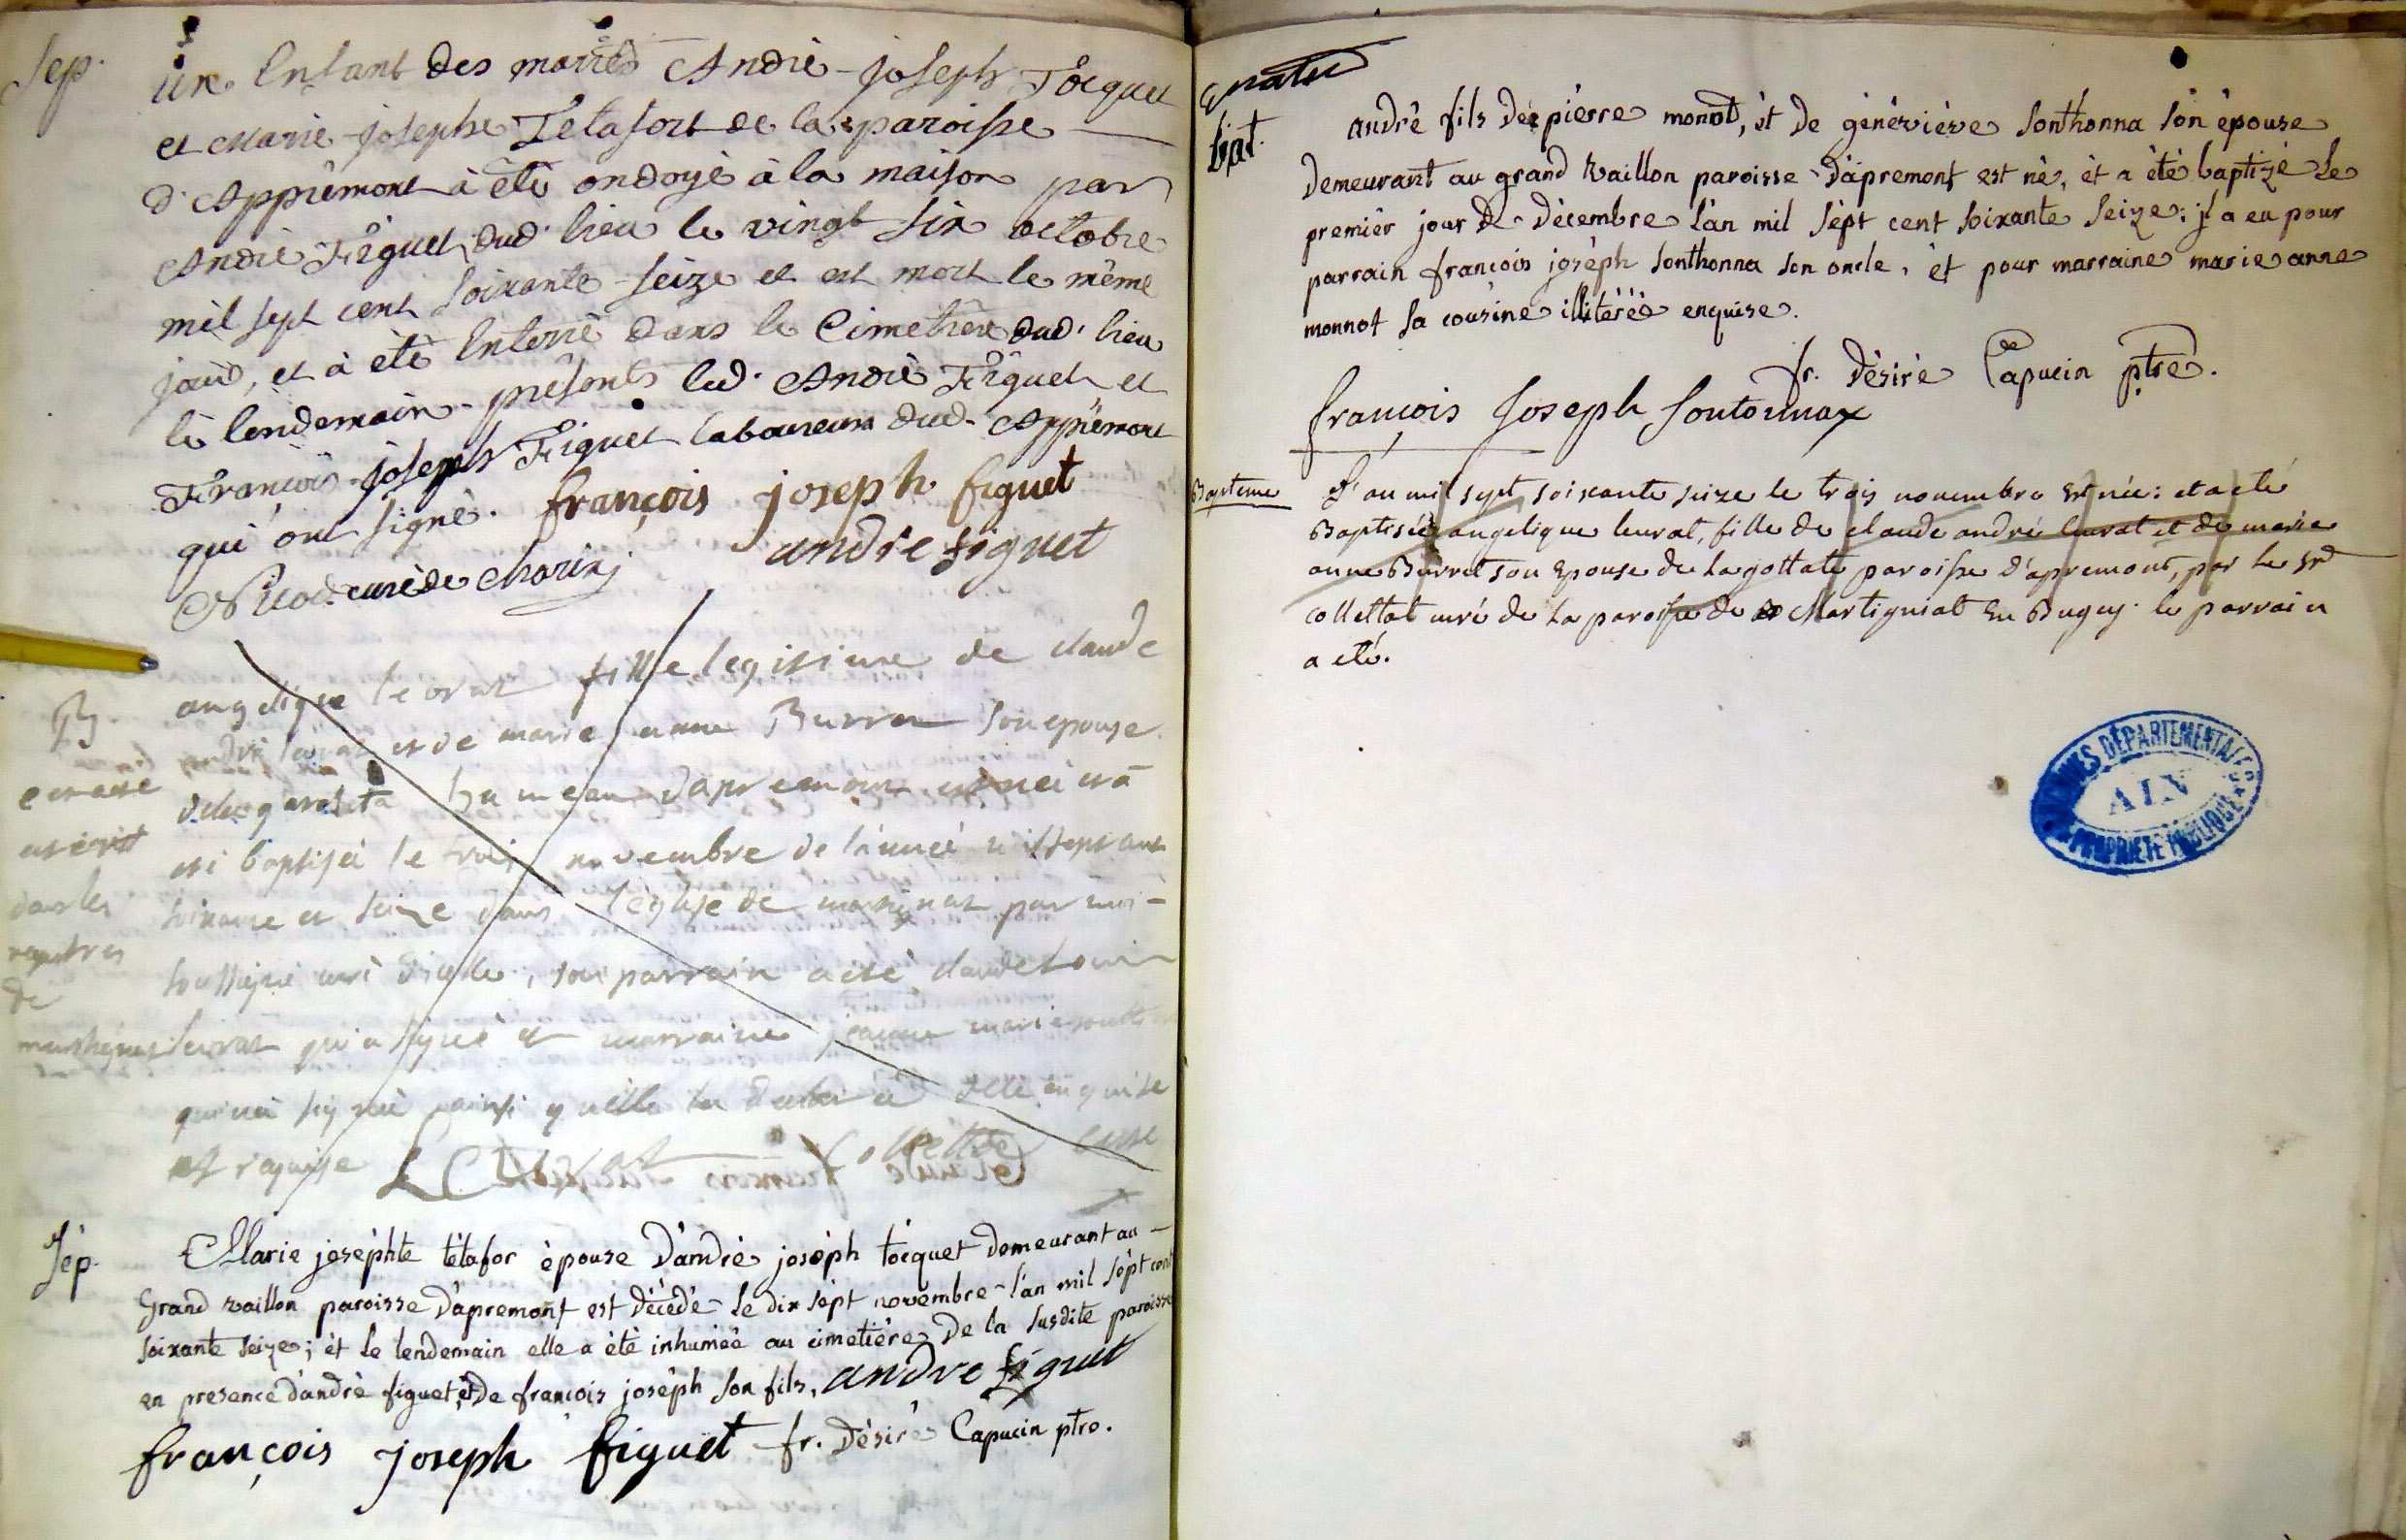 Sep.
un Enfant des mariés André-joseph Tocquet
et Marie-josephe Tetafort de la paroisse
d'Apprêmont à été ondoyé à la maison par
André Figuet dud. lieu le vingt six octobre
mil sept cent soixante-seize et est mort le même
jour, et à été Enterré dans le Cimetière dud. lieu
le lendemain présents led. André Figuet et
François-joseph Figuet laboureurs dud. Apprêmont
qui ont signé. françois joseph figuet
andre figuet
curé de Charix
B.
cet acte
est écrit
dans les
registres
de
angelique levrat fille legitime de claude
andré levrat et de marie anne Burret son epouse
hameau d'apremont est née et a
été baptisée le trois novembre de l'année mil sept cent
soixante et seize dans l'église de martignat par moi
soussigné curé dudit lieu, son parrain a été claude louis
levrat qui a signé et marraine jeanne marie
qui n'a signé ainsi qu'elle l'a declaré de ce enquise
et requise Collettat curé
Sép.
Marie joséphte tétafor épouse D'andré joséph tocquet demeurant au
Grand vaillon paroisse D'apremont est décédé le dix sépt novembre l'an mil sépt cent
soixante seize; ét le lendemain elle a été inhumée au cimetière De la susdite paroisse
en presence d'andré figuet, ét De francois joséph son fils, andre figuet
françois joseph figuet fr. Désiré Capucin ptre.
bat.
andré fils De pierre monot, ét De généviéve sonthonna son épouse
Demeurant au grand vaillon paroisse D'apremont est né, ét a été baptizé Le
premiér jour De Décembre l'an mil sépt cent soixante seize; jl a eu pour
parrain francois joséph sonthonna son oncle, ét pour marraine marie anne
monnot sa cousine illitérée enquise.
fr. Désiré Capucin ptre.
françois Joseph Sontonnax
Bapteme
L'an mil sept soixante seize le trois novembre est née: et a eté
Baptisée angelique leurat, fille de claude andré leurat et de marie
anne Burret son Epouse de la gottate paroisse d'apremont, par le Sr
collettat curé de la paroisse de Martigniat En Bugey. le parrain
a eté.
ARCHIVES DÉPARTEMENTALES
AIN
PROPRIÉTÉ PUBLIQUE